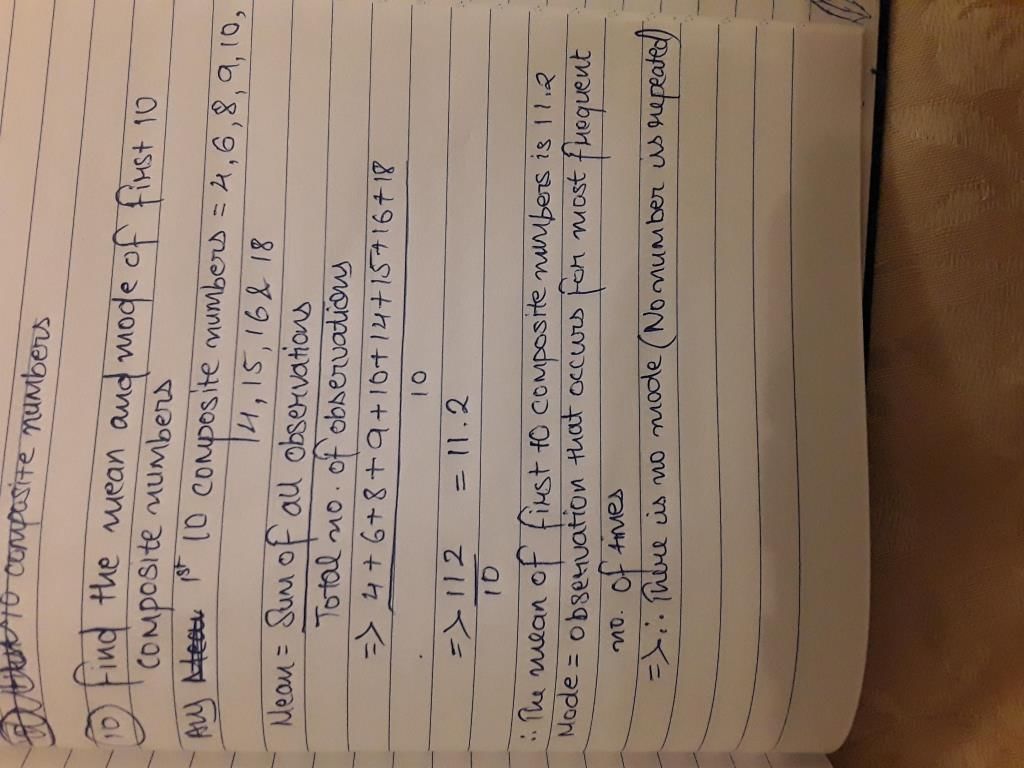 10 composite numbers
10 Find the mean and mode of first 10
composite numbers
Any 1st 10 composite numbers = 4, 6, 8, 9, 10,
14, 15, 16 & 18
Mean = Sum of all observations
Total no. of observations
=> 4+6+8+9+10+14+15+16+18
10
=> 112 = 11.2
10
∴ The mean of first 10 composite numbers is 11.2
Mode = observation that occurs for most frequent
no. of times
=> ∴ There is no mode (No number is repeated)